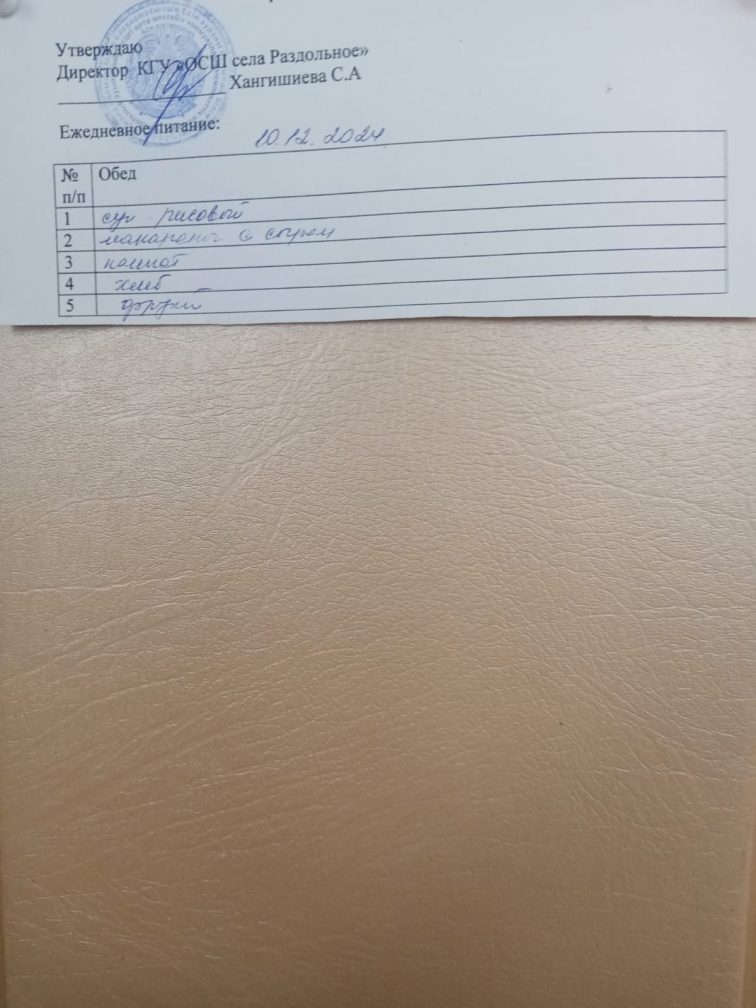 Утверждаю
Директор КГУ «ОСШ села Раздольное»
Хангишиева С.А
Ежедневное питание:
10.12.2024
№ п/п Обед
1 суп рисовый
2 макароны с сыром
3 компот
4 хлеб
5